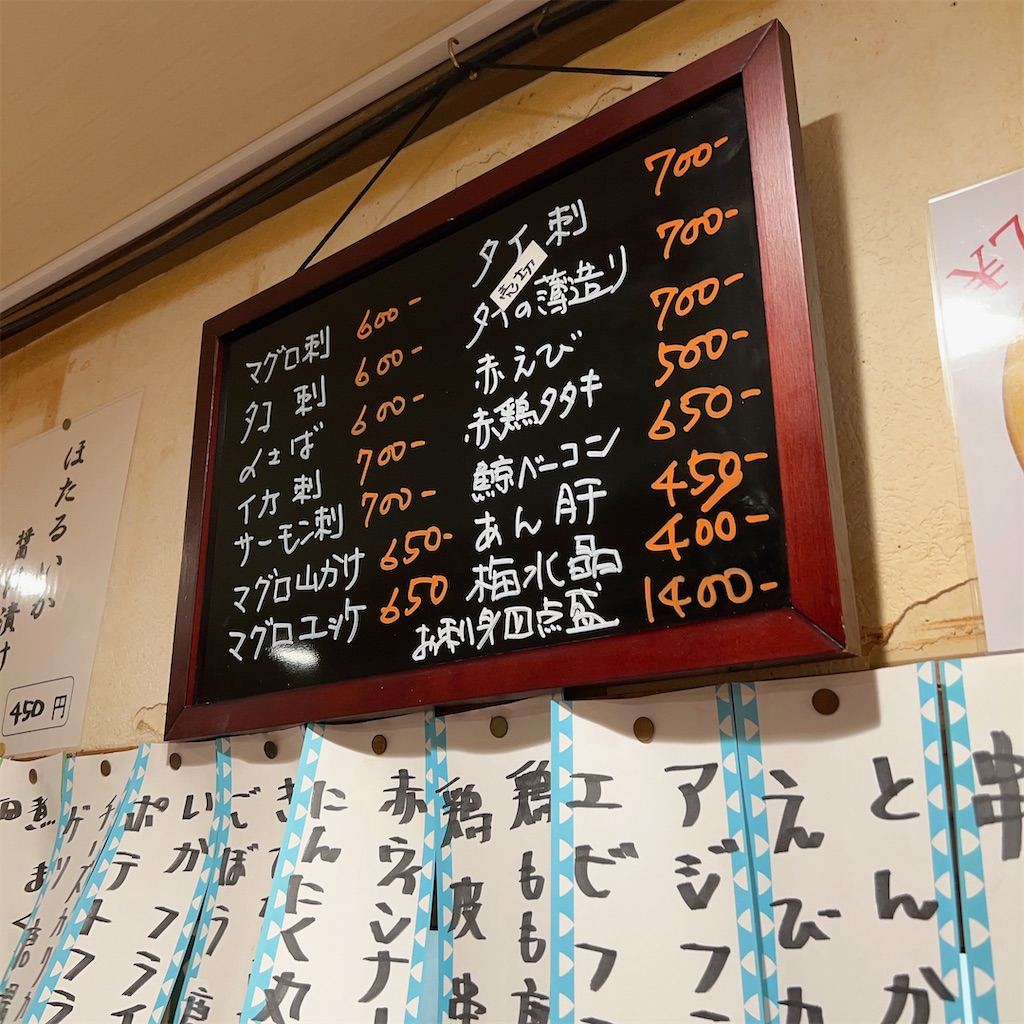 マグロ刺 600-
タコ刺 600-
〆さば 600-
イカ刺 700-
サーモン刺 700-
マグロ山かけ 650-
マグロユッケ 650
タイ刺 700-
売切
タイの薄造り 700-
赤えび 700-
赤鶏タタキ 500-
鯨ベーコン 650-
あん肝 450-
梅水晶 400-
お刺身四点盛 1400-
ほたるいか
醤油漬け
450円
串
とんか
えびカ
アジフ
エビフ
鶏もも
鶏皮串
赤ウィンナー
にんにく丸
ごぼう唐
いかフライ
ポテトフラ
煮